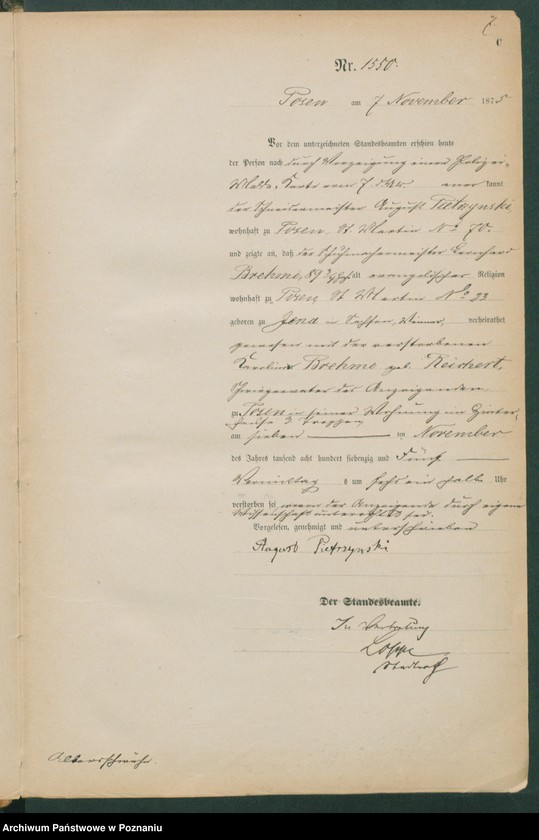 7
C
Nr. 1550.
Posen am 7 November 1875
Vor dem unterzeichneten Standesbeamten erschien heute
der Person nach durch Vorzeigung einer Polizei-
Melde-Karte vom 7. aner kannt
der Schneidermeister August Pietrzynski,
wohnhaft zu Posen, St. Martin No 70.
und zeigte an, daß der Schuhmachermeister Bernhard
Brehme, 89 3/4 Jahr alt evangelischer Religion
wohnhaft zu Posen St Martin No 22
geboren zu Jena in Sachsen, Weimar, verheirathet
gewesen mit der verstorbenen
Karoline Brehme geb. Reichert,
Schwiegervater des Anzeigenden
zu Posen in seiner Wohnung im Hinter-
hause 3 Treppen
am sieben ten November
des Jahres tausend acht hundert siebenzig und Fünf
Vormittag s um sechs ein halb Uhr
verstorben sei, wovon der Anzeigende durch eigene
Wissenschaft unterrichtet sei.
Vorgelesen, genehmigt und unterschrieben
August Pietrzynski
Der Standesbeamte.
In Vertretung
Stadtrath
Altersschwäche.
Archiwum Państwowe w Poznaniu